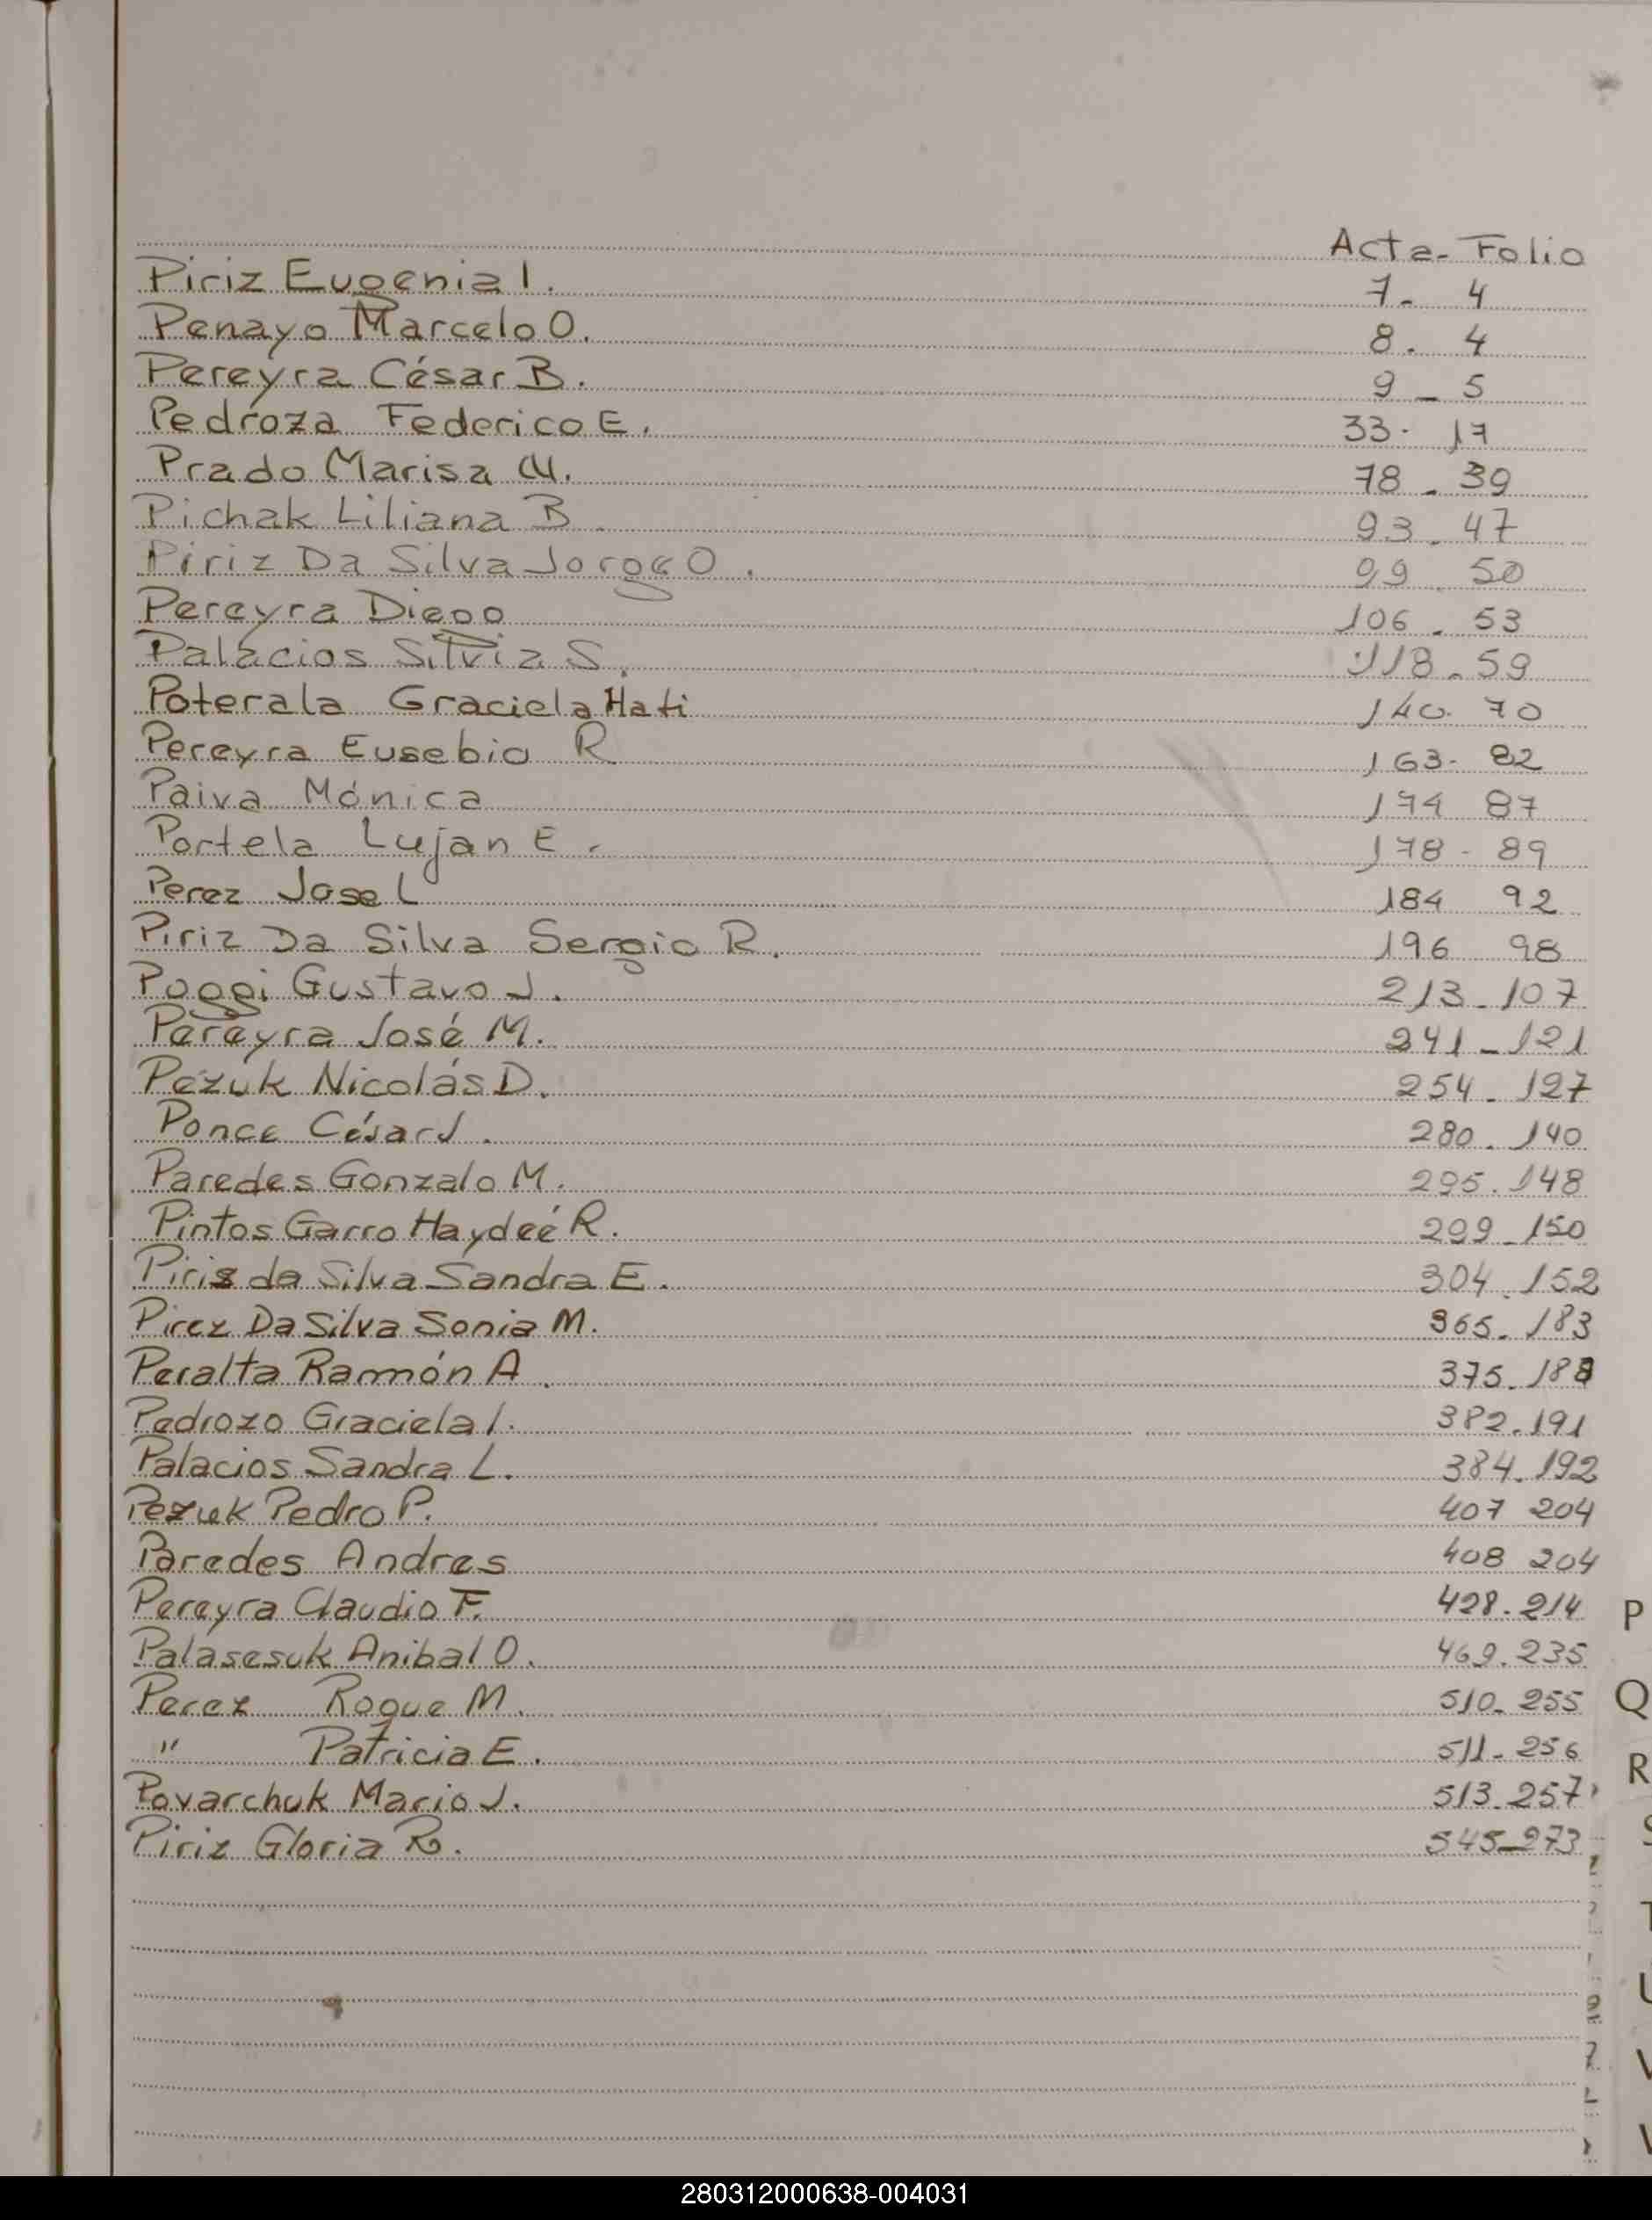 Acta- Folio
Piriz Eugenia I. 7- 4
Penayo Marcelo O. 8. 4
Pereyra César B. 9 - 5
Pedroza Federico E. 33- 17
Prado Marisa M. 78 - 39
Pichak Liliana B. 93 - 47
Piriz Da Silva Jorge O. 99 50
Pereyra Diego 106 - 53
Palacios Silvia S. 118 - 59
Poterala Graciela Hati 140. 70
Pereyra Eusebio R 163- 82
Paiva Mónica 174 87
Portela Lujan E. 178 - 89
Perez Jose L 184 92
Piriz Da Silva Sergio R. 196 98
Poggi Gustavo J. 213 - 107
Pereyra José M. 241 - 121
Pezuk Nicolás D. 254 - 127
Ponce César J. 280. 140
Paredes Gonzalo M. 295. 148
Pintos Garro Haydeé R. 299 - 150
Piris da Silva Sandra E. 304. 152
Pirez Da Silva Sonia M. 365. 183
Peralta Ramón A. 375. 188
Pedrozo Graciela I. 382. 191
Palacios Sandra L. 384. 192
Pezuk Pedro P. 407 204
Paredes Andres 408 204
Pereyra Claudio F. 428. 214
Palasesuk Anibal O. 469. 235
Perez Roque M. 510. 255
" Patricia E. 511. 256
Povarchuk Mario J. 513. 257
Piriz Gloria R. 545 - 273
P
Q
R
280312000638-004031